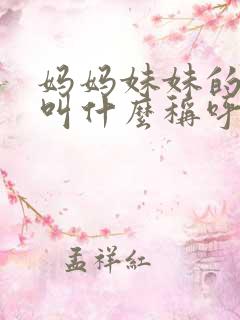 妈妈妹妹的
叫什麼稱呼
孟祥紅